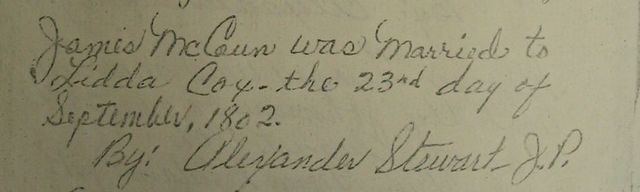 James McCoun was Married to
Lidda Cox - the 23rd day of
September, 1802.
By: Alexander Stewart - J.P.